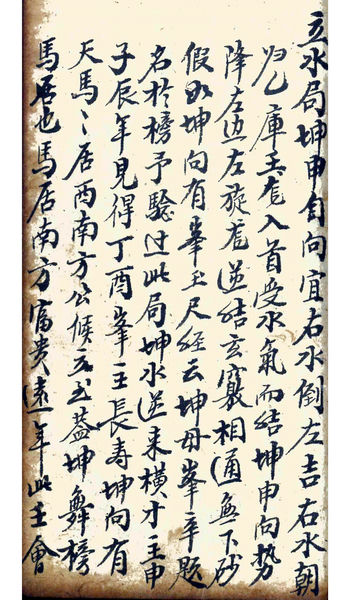 立水局坤申向宜右水倒左吉右水朝
归乙庫壬龙入首受水氣而結坤申向势
降左边左旋龙逆結玄竅相通無下砂
假如坤向有峯玉尺經云坤母峯辛题
名於榜予驗过此局坤水逆来横才主申
子辰年見得丁酉峯主長寿坤向有
天馬〻居西南方公候立至蓋坤舞榜
馬居也馬居南方富貴遠年此主會